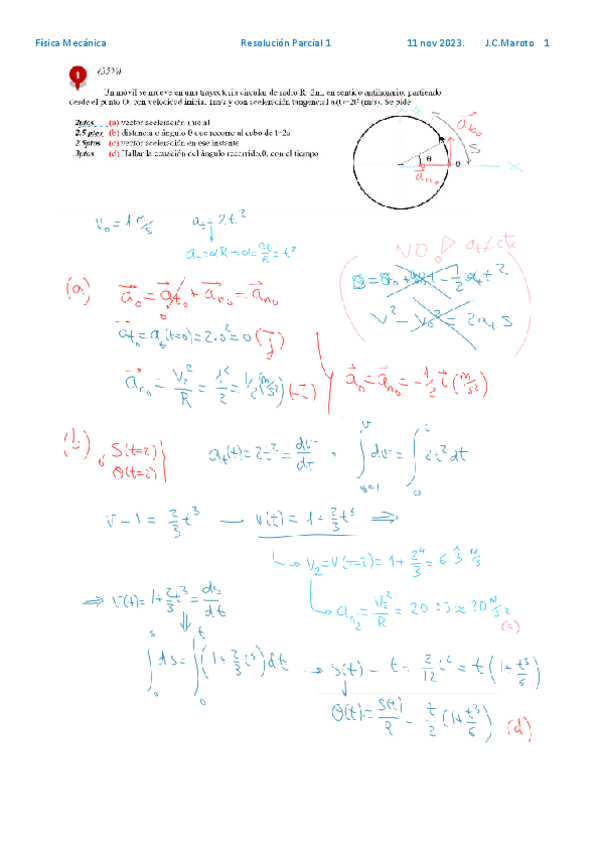 Física Mecánica Resolución Parcial 1 11 nov 2023. J.C.Maroto 1
1 (35%)
Un móvil se mueve en una trayectoria circular de radio R=2m, en sentido antihorario, partiendo
desde el punto O, con velocidad inicial 1m/s y con aceleración tangencial a(t)=2t² (m/s). Se pide:
2ptos (a) vector aceleración inicial
2.5 ptos (b) distancia o ángulo θ que recorre al cabo de t=2s
2.5ptos (c) vector aceleración en ese instante
3ptos (d) Hallar la ecuación del ángulo recorrido,θ, con el tiempo
a⃗t₀
S
θ
O
x
a⃗n₀
v₀ = 1 m/s at = 2t²
at = αR → α = at/R = t²
NO ▷ at ≠ cte
v² - v₀² = 2at s
(a) a⃗₀ = a⃗t₀ + a⃗n₀ = a⃗n₀
0
a⃗t₀ = at(t=0) = 2·0² = 0 (j⃗)
a⃗n₀ = v₀²/R = 1²/2 = 1/2 (m/s²) (-i⃗)
a⃗₀ = a⃗n₀ = -1/2 i⃗ (m/s²)
(b) ¿ S(t=2)
θ(t=2)
at(t) = 2t² = dv/dt
∫ dv = ∫ 2t² dt
v - 1 = 2/3 t³ — v(t) = 1 + 2/3 t³ ⇒
v₂ = v(t=2) = 1 + 2⁴/3 = 6.3 m/s
⇒ v(t) = 1 + 2/3 t³ = ds/dt
an₂ = v₂²/R = 20.05 ≈ 20 m/s²
(c)
∫ ds = ∫ (1 + 2/3 t³) dt → s(t) = t + 2/12 t⁴ = t (1 + t³/6)
θ(t) = s(t)/R = t/2 (1 + t³/6) (d)